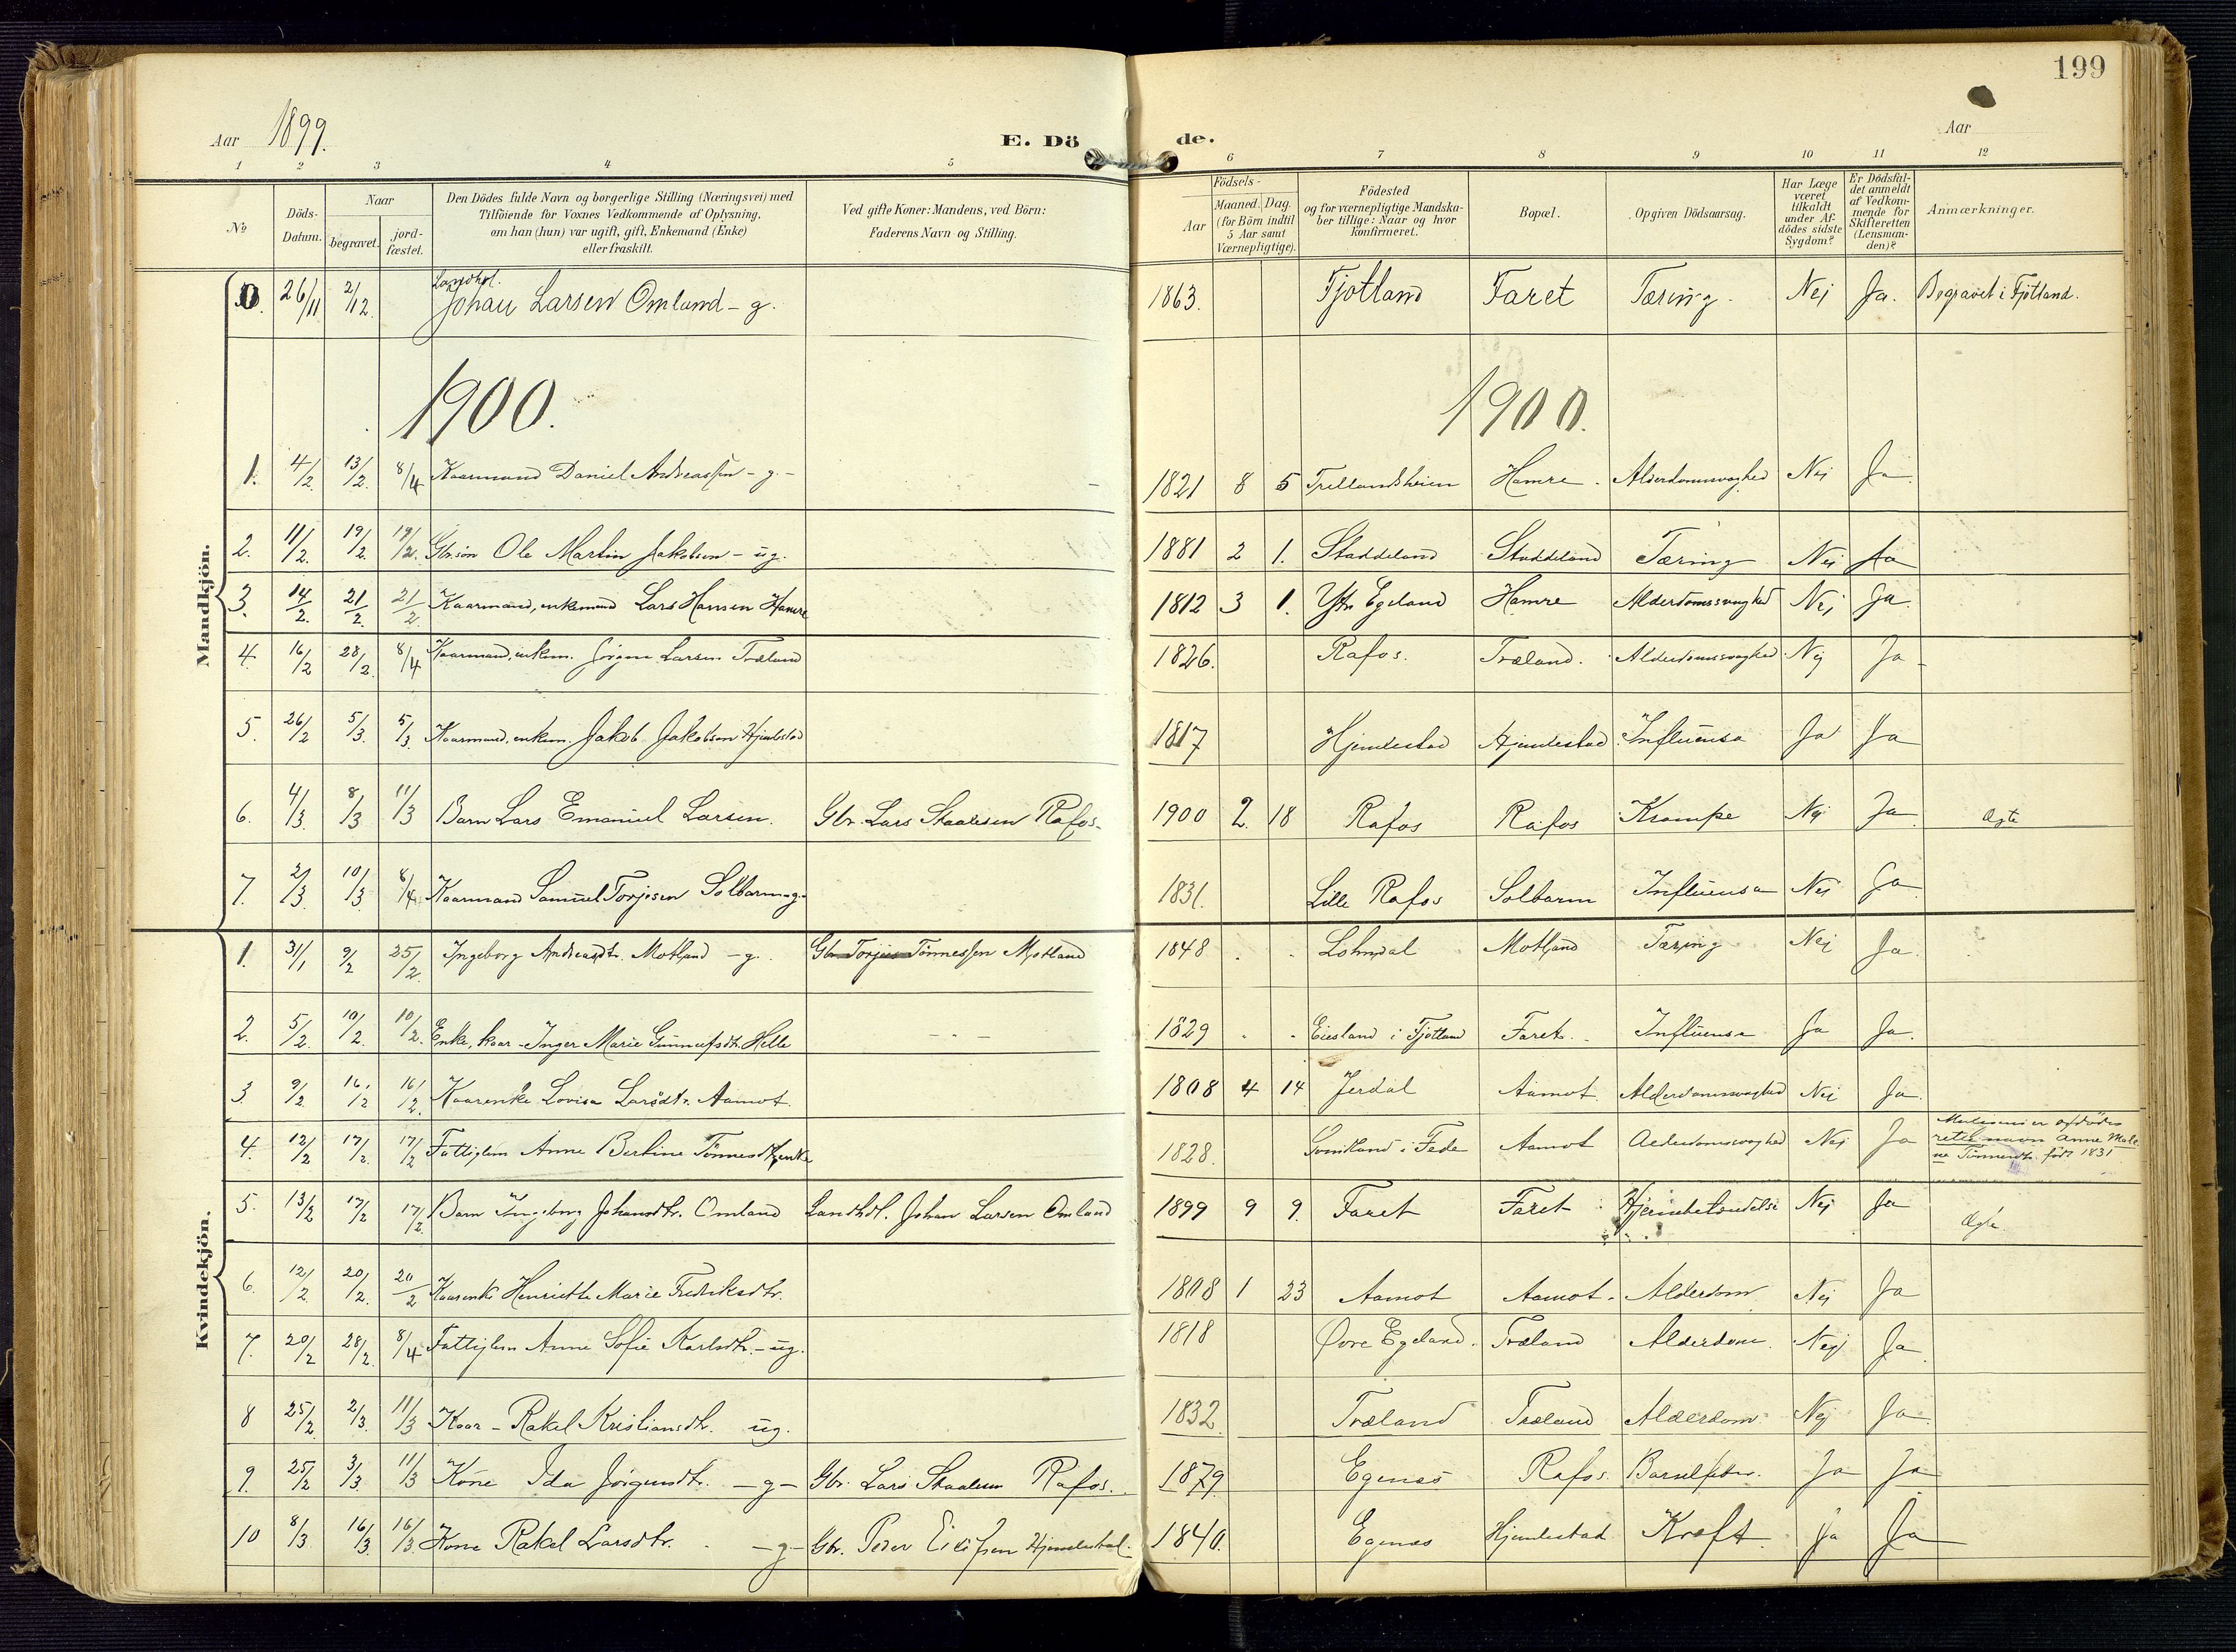 199
Aar 1899.
E. Dö
de.
Aar
1 2 3 4 5 6 7 8 9 10 11 12
No
Döds-Datum.
Naar
begravet.
jord-fæstet.
Den Dödes fulde Navn og borgerlige Stilling (Næringsvei) med
Tilföiende for Voxnes Vedkommende af Oplysning,
om han (hun) var ugift, gift, Enkemand (Enke)
eller fraskilt.
Ved gifte Koner: Mandens, ved Börn:
Faderens Navn og Stilling.
Födsels-
Aar
Maaned. Dag.
(for Börn indtil
5 Aar samt
Værnepligtige).
Födested
og for værnepligtige Mandska-
ber tillige: Naar og hvor
konfirmeret.
Bopæl.
Opgiven Dödsaarsag.
Har Læge
været
tilkaldt
under Af-
dödes sidste
Sygdom?
Er Dödsfal-
det anmeldt
af Vedkom-
mende for
Skifteretten
(Lensman-
den)?
Anmærkninger.
Mandkjön.
26/11 2/12 Landhdl. Johan Larsen Omland - g. 1863. Fjotland Faret Tæring. Nej Ja. Begravet i Fjotland.
1900. 1900.
1. 4/2 13/2 8/4 Kaarmand Daniel Andreassen - g. - 1821 8 5 Trellandsheien Hamre. Alderdomssvaghed Nei Ja
2. 11/2 19/2 19/2 Gbr.sön Ole Martin Jakobsen - ug. 1881 2 1. Staddeland Staddeland Tæring Nei Ja
3. 14/2 21/2 21/2 Kaarmand, enkemand Lars Hansen Hamre 1812 3 1. Ytr. Egeland Hamre Alderdomssvaghed Nej Ja.
4. 16/2 28/2 8/4 Kaarmand, enkem. Jörgen Larsen Træland 1826. Rafos. Træland. Alderdomssvaghed Nej Ja
5. 26/2 5/3 5/3 Kaarmand, enkem. Jakob Jakobsen Hjemlestad 1817 Hjemlestad Hjemlestad Influensa Ja Ja
6. 4/3 8/3 11/3 Barn Lars Emanuel Larsen. Gbr. Lars Staalesen Rafos. 1900 2. 18 Rafos Rafos Krampe Nej Ja Ægte
7. 2/3 10/3 8/4 Kaarmand Samuel Torjesen Solbarm-g. 1831. Lille Rafos Solbarm Influensa Nei Ja
Kvindekjön.
1. 31/1 9/2 25/2 Ingeborg Andreasdtr. Motland - g. Gbr. Torjus Tönnessen Motland 1848 Lohndal Motland Tæring Nei Ja.
2. 5/2 10/2 10/2 Enke, kaar - Inger Marie Gunnufsdtr. Helle 1829 Eiesland i Fjotland Faret. Influensa Ja Ja.
3. 9/2 16/2 16/2 Kaarenke Lovise Larsdtr. Aamot. 1808 4 14 Jerdal Aamot. Alderdomssvaghed Nei Ja.
4. 12/2 17/2 17/2 Fattiglem Anne Bertine Tönnesdtr, enke 1828. i Fede Aamot Alderdomssvaghed Nej Ja
er afdödes
rette navn Anne Male
ne Tönnesdtr. född 1831
5. 13/2 17/2 17/2 Barn Ingeborg Johansdtr. Omland Landhdl. Johan Larsen Omland 1899 9 9. Faret Faret Hjernebetændelse Nej Ja Ægte.
6. 12/2 20/2 20/2 Kaarenke Henriette Marie Fredriksdtr. 1808 1 23 Aamot Aamot. Alderdom Nej Ja
7. 20/2 28/2 8/4 Fattiglem Anne Sofie Karlsdtr. - ug. 1818 Övre Egeland. Træland Alderdom. Nej Ja.
8 25/2 2/3 11/3 Kaar - Rakel Kristiansdtr. ug. 1832. Træland Træland Alderdom Nej Ja
9. 25/2 3/3 11/3 Kone Ida Jörgensdtr. - g - Gbr. Lars Staalesen Rafos. 1879. Egenæs Rafos. Barselfeber. Ja Ja
10 8/3 16/3 16/3 Kone Rakel Larsdtr. - g - Gbr. Peder Hjemlestad. 1840. Egenæs Hjemlestad Kræft. Ja Ja